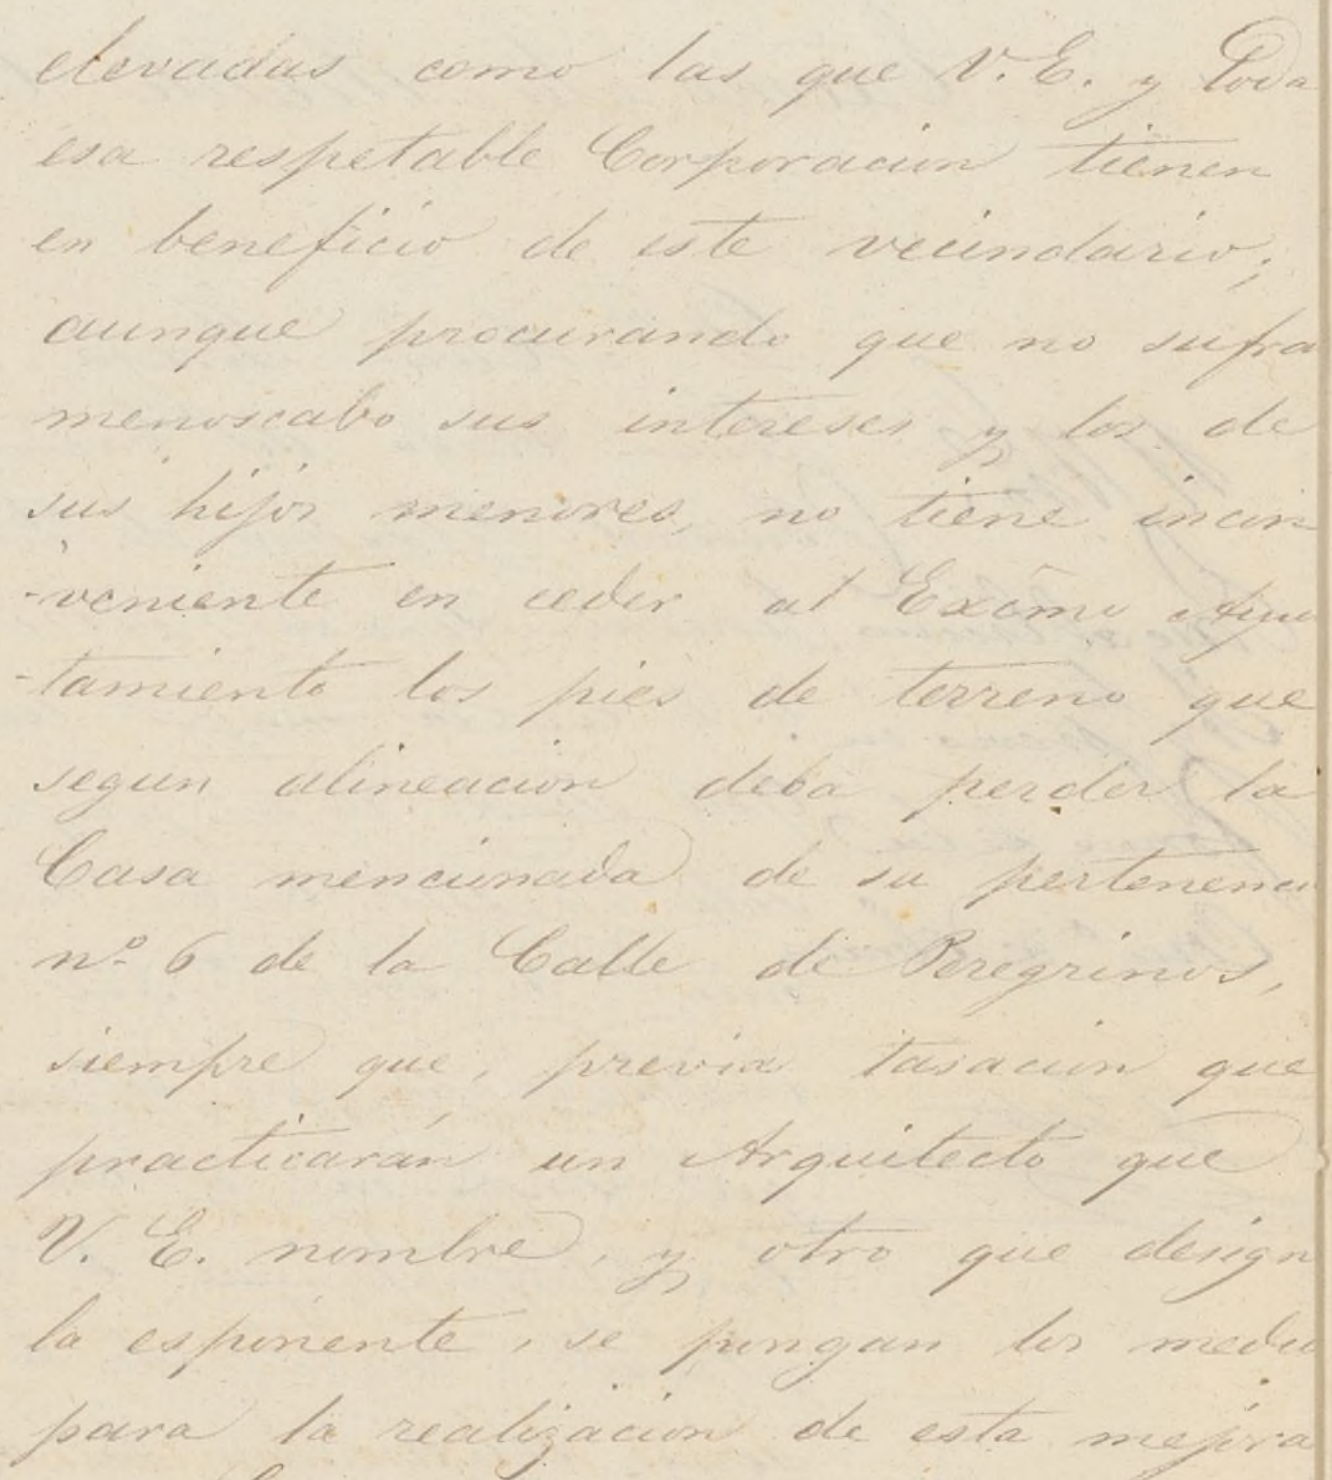 elevadas como las que V. E. y toda
esa respetable Corporacion tienen
en beneficio de este vecindario,
aunque procurando que no sufra
menoscabo sus intereses y los de
sus hijos menores, no tiene incon
-veniente en ceder al Excmo Ayun
-tamiento los pies de terreno que
segun alineacion deba perder la
Casa mencionada de su pertenenci
nº 6 de la Calle de Peregrinos,
siempre que, previa tasacion que
practicarán un Arquitecto que
V. E. nombre, y otro que design
la esponente, se pongan los medio
para la realizacion de esta mejora